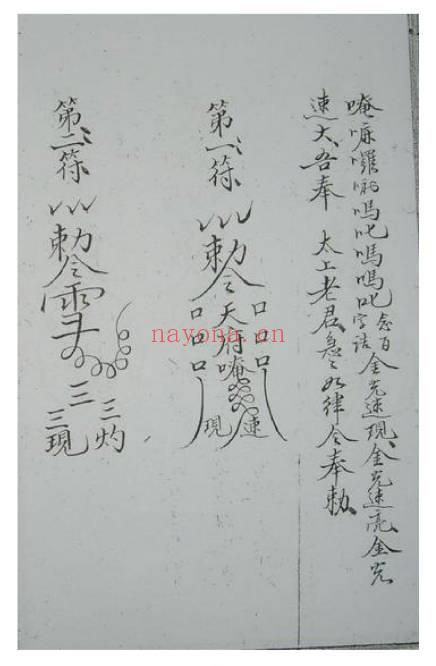 唵嘛囉唎嗎吒嗎嗎吒 念百字語 金光速現、金光速亮金光
速大吾奉 太上老君急急如律令奉勅
第一符
勅令天府唵
口口口
口口口
現 速
第二符
勅令雷
三 三灼
三現
nayona.cn